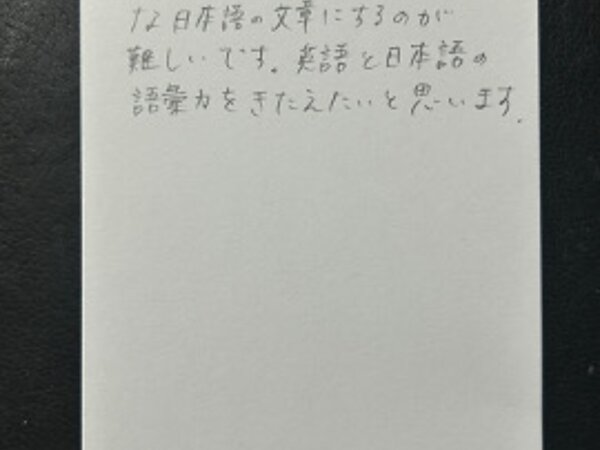 な日本語の文章にするのが
難しいです。英語と日本語の
語彙力をきたえたいと思います.